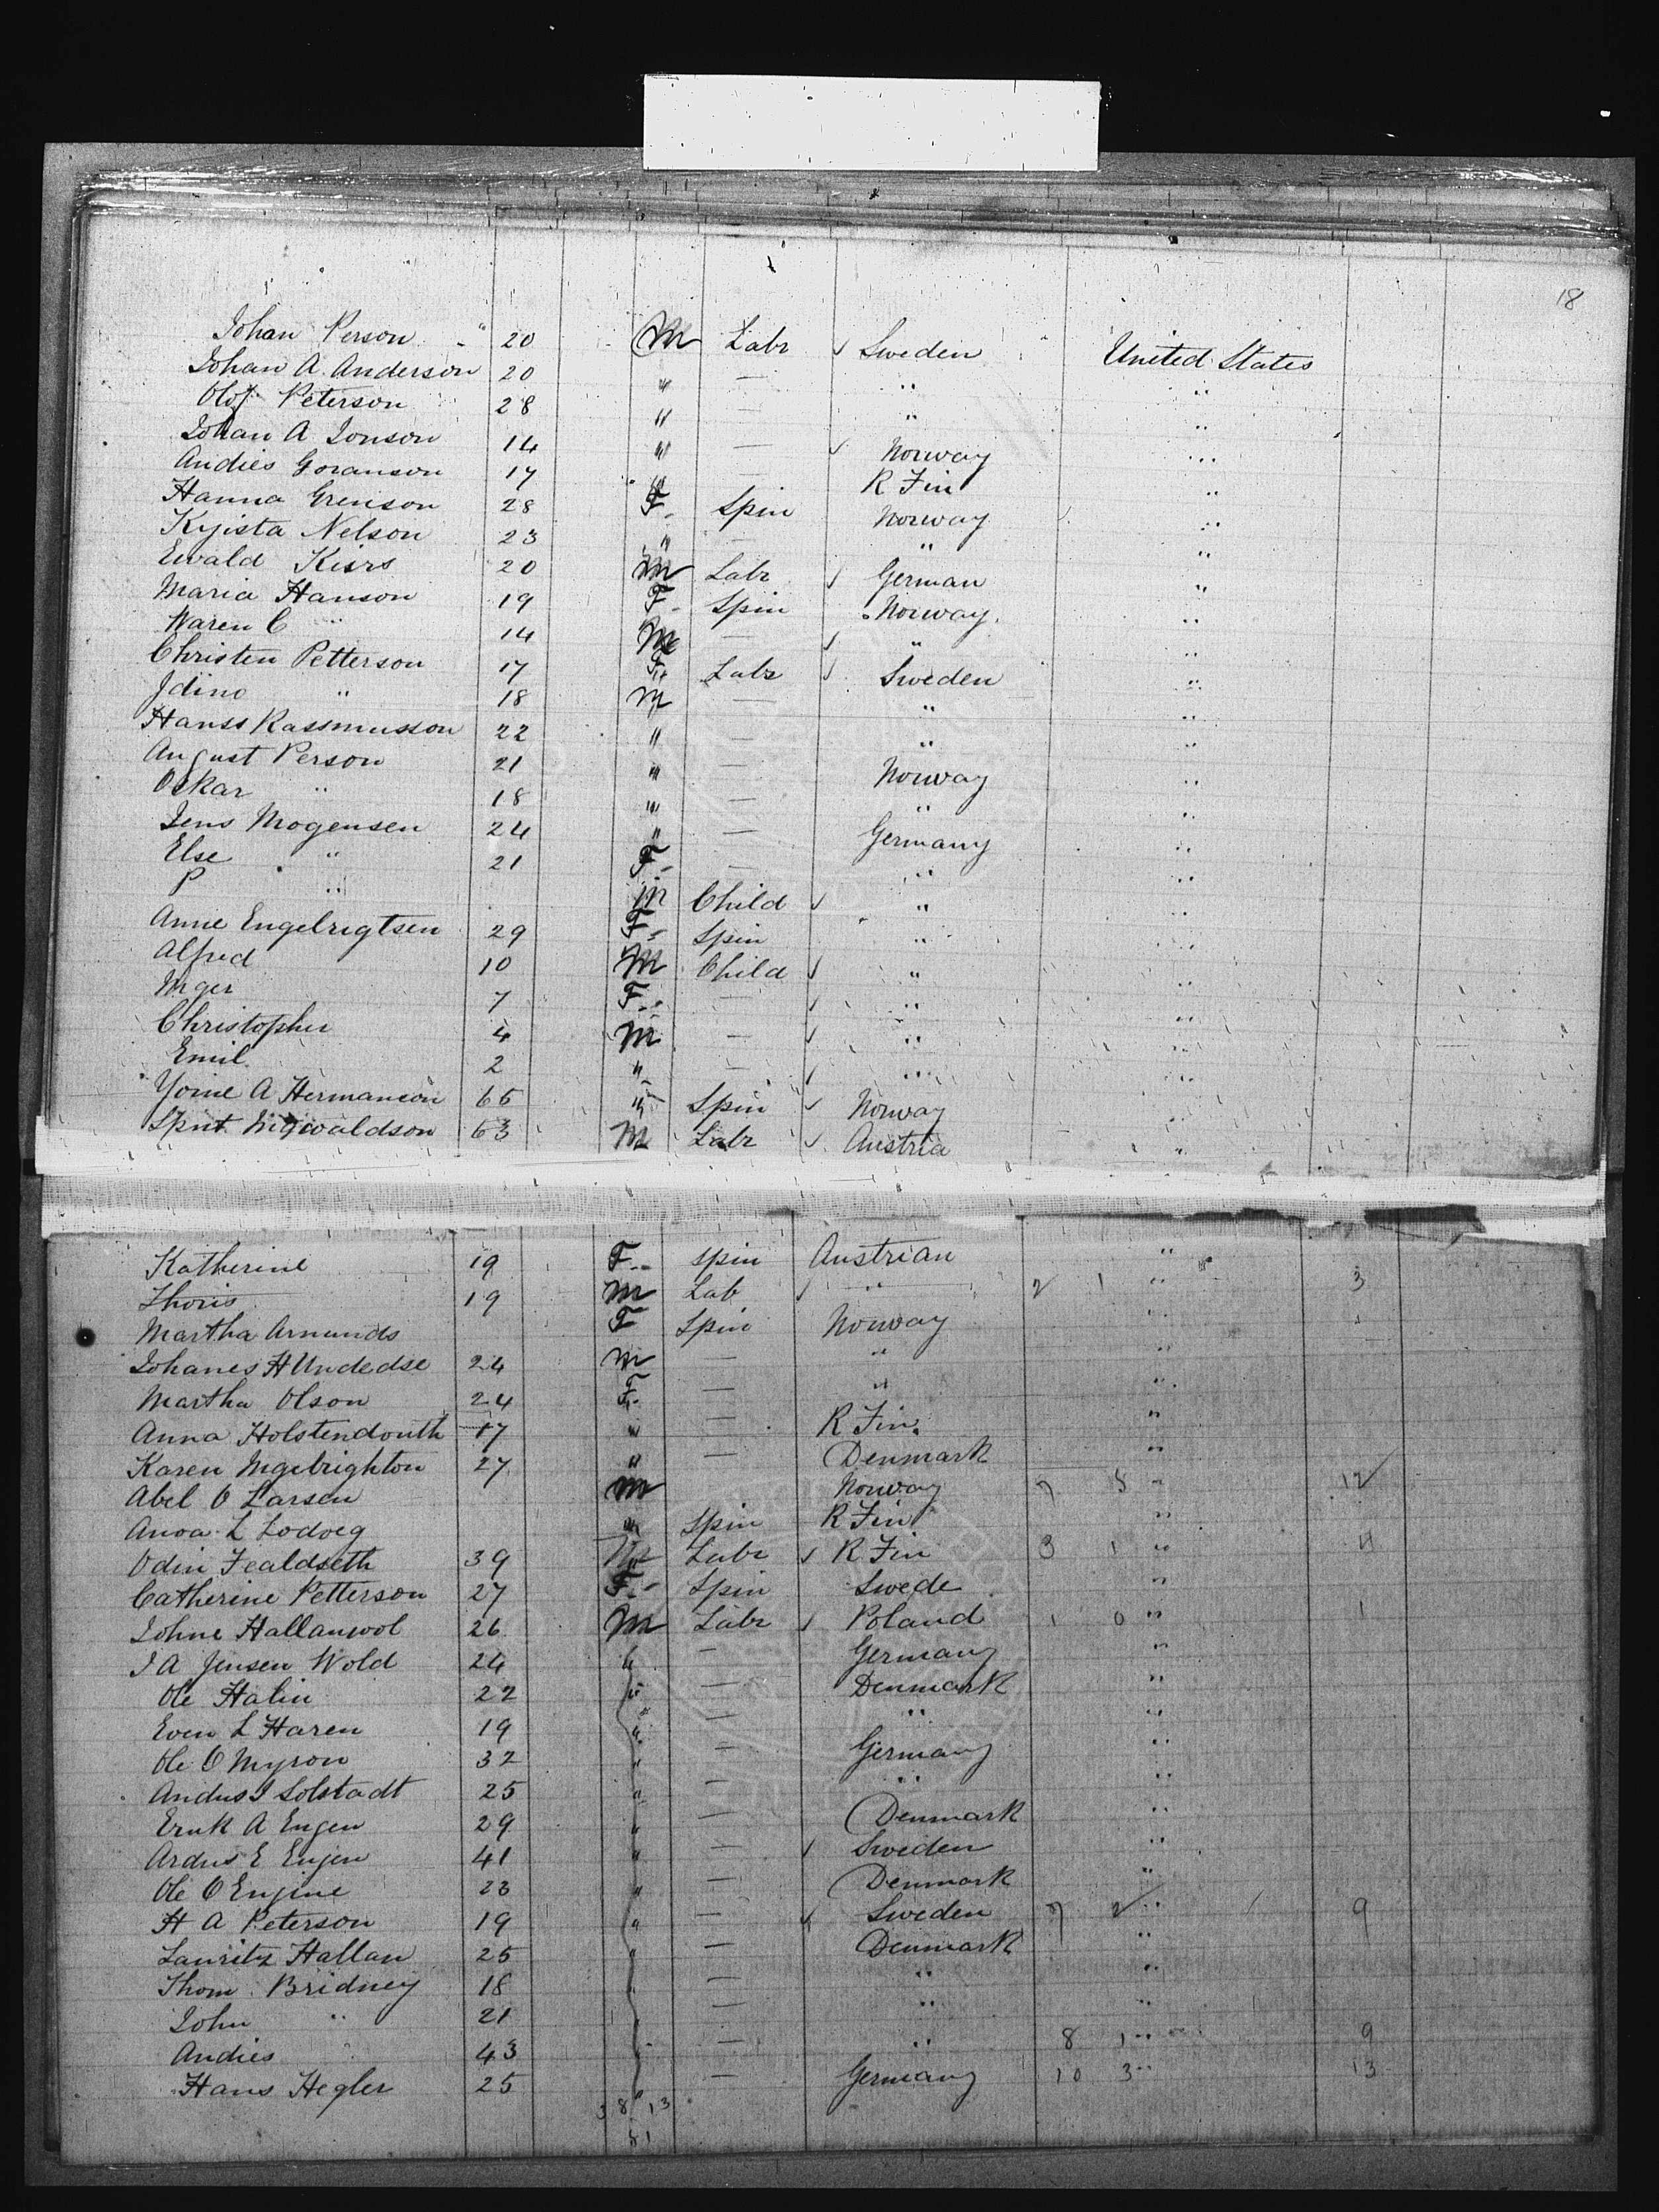 18
Johan Person " 20 M Labr ✓ Sweden United States
Johan A. Anderson 20 " — " "
Olof Peterson 28 " — " "
Johan A Jonson 14 " — ✓ Norway "
Andies Goranson 17 " R Fin "
Hanna Grenson 28 F Spin Norway "
Kyista Nelson 23 " — " "
Ewald Kisrs 20 M Labr ✓ German "
Maria Hanson 19 F Spin Norway "
Waren C " 14 M — ✓ " "
Christen Petterson 17 F Labr ✓ Sweden "
Jdino " 18 M — " "
Hanss Rassmusson 22 " — " "
August Person 21 " — Norway "
Oskar " 18 " — " "
Jens Mogensen 24 " — Germany "
Else " 21 F — " "
P " M Child ✓ " "
Anne Engelrigtsen 29 F Spin " "
Alfred 10 M Child ✓ " "
7 F — ✓ " "
Christopher 4 M — ✓ " "
Emil 2 " — ✓ " "
A Hermanson 65 " Spin ✓ Norway "
63 M Labr ✓ Austria "
Katherine 19 F Spin Austrian "
Thoris 19 M Lab ✓ " 2 1 " 3
Martha Amunds F Spin Norway "
Johanes H Undedse 24 M — " "
Martha Olson 24 F — " "
Anna Holstendouth 17 " — R Fin. "
Karen Ingebrighton 27 " — Denmark "
Abel O Larsen M Norway 7 5 " 12
L Lodveg " Spin R Fin "
Odin Fealdseth 39 M Labr ✓ R Fin 3 1 " 4
Catherine Petterson 27 F Spin Swede "
Johne Hallanwol 26 M Labr ✓ Poland 1 0 " 1
J A Jensen Wold 24 " — Germany "
Ole Halin 22 " — Denmark "
Even L Haren 19 " — " "
Ole O Myron 32 " — Germany "
Andus J Solstadt 25 " — " "
Eruk A Engen 29 " — Denmark "
Ardus E Enjen 41 " — ✓ Sweden "
Ole O Enjine 23 " — Denmark "
H A Peterson 19 " — ✓ Sweden 7 2 " 9
Lauritz Hallan 25 " — Denmark "
Thom Bridney 18 " — " "
John " 21 — " "
Andies 43 — " 8 1 " 9
Hans Hegler 25 " — Germany 10 3 " 13
38 13
51